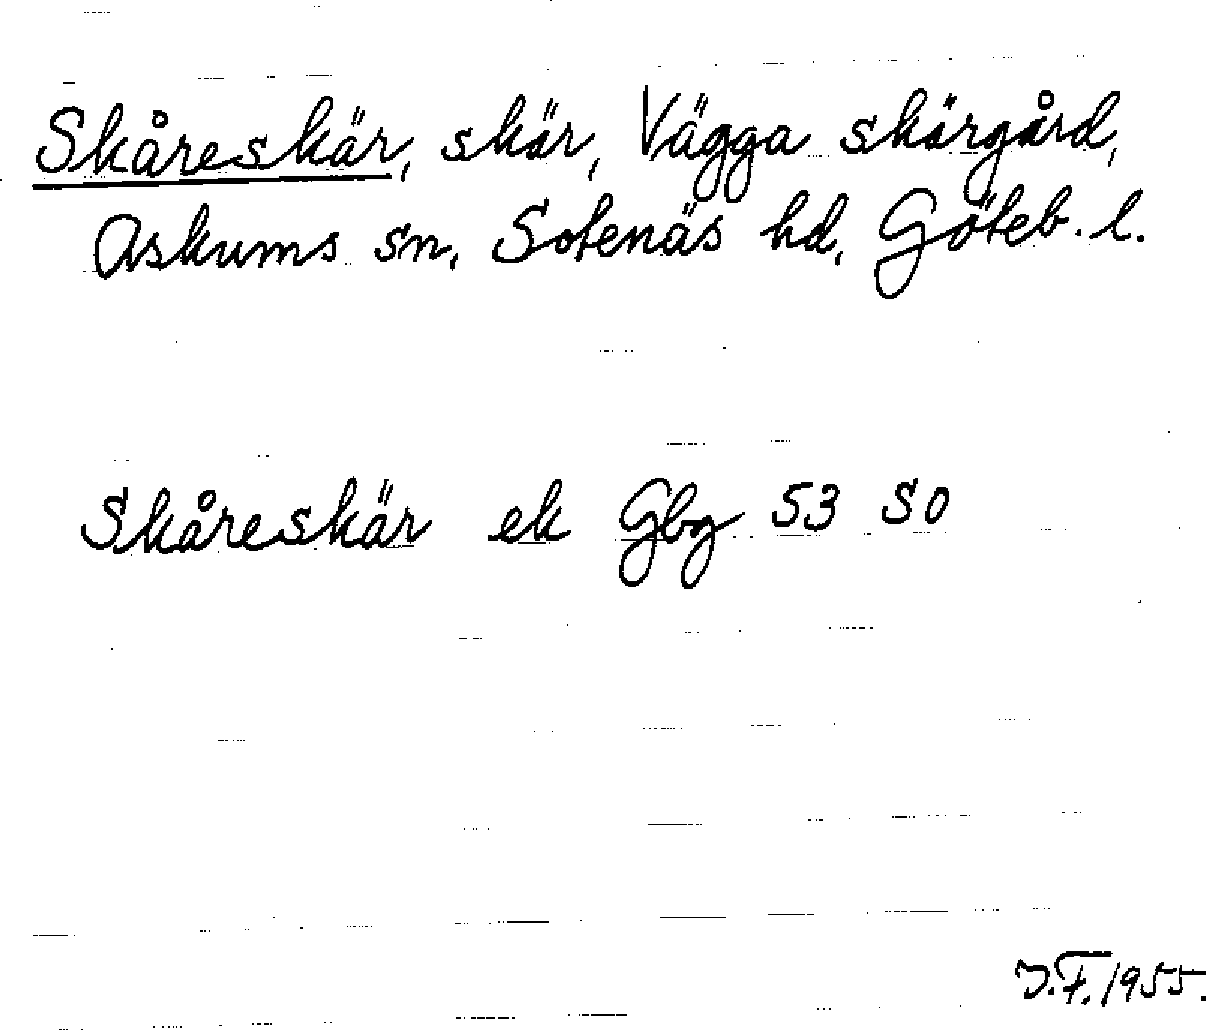 Skåreskär, skär, Vägga skärgård,
Askums sn, Sotenäs hd, Göteb. l.
Skåreskär ek Gbg 53 SO
J.F. 1955.